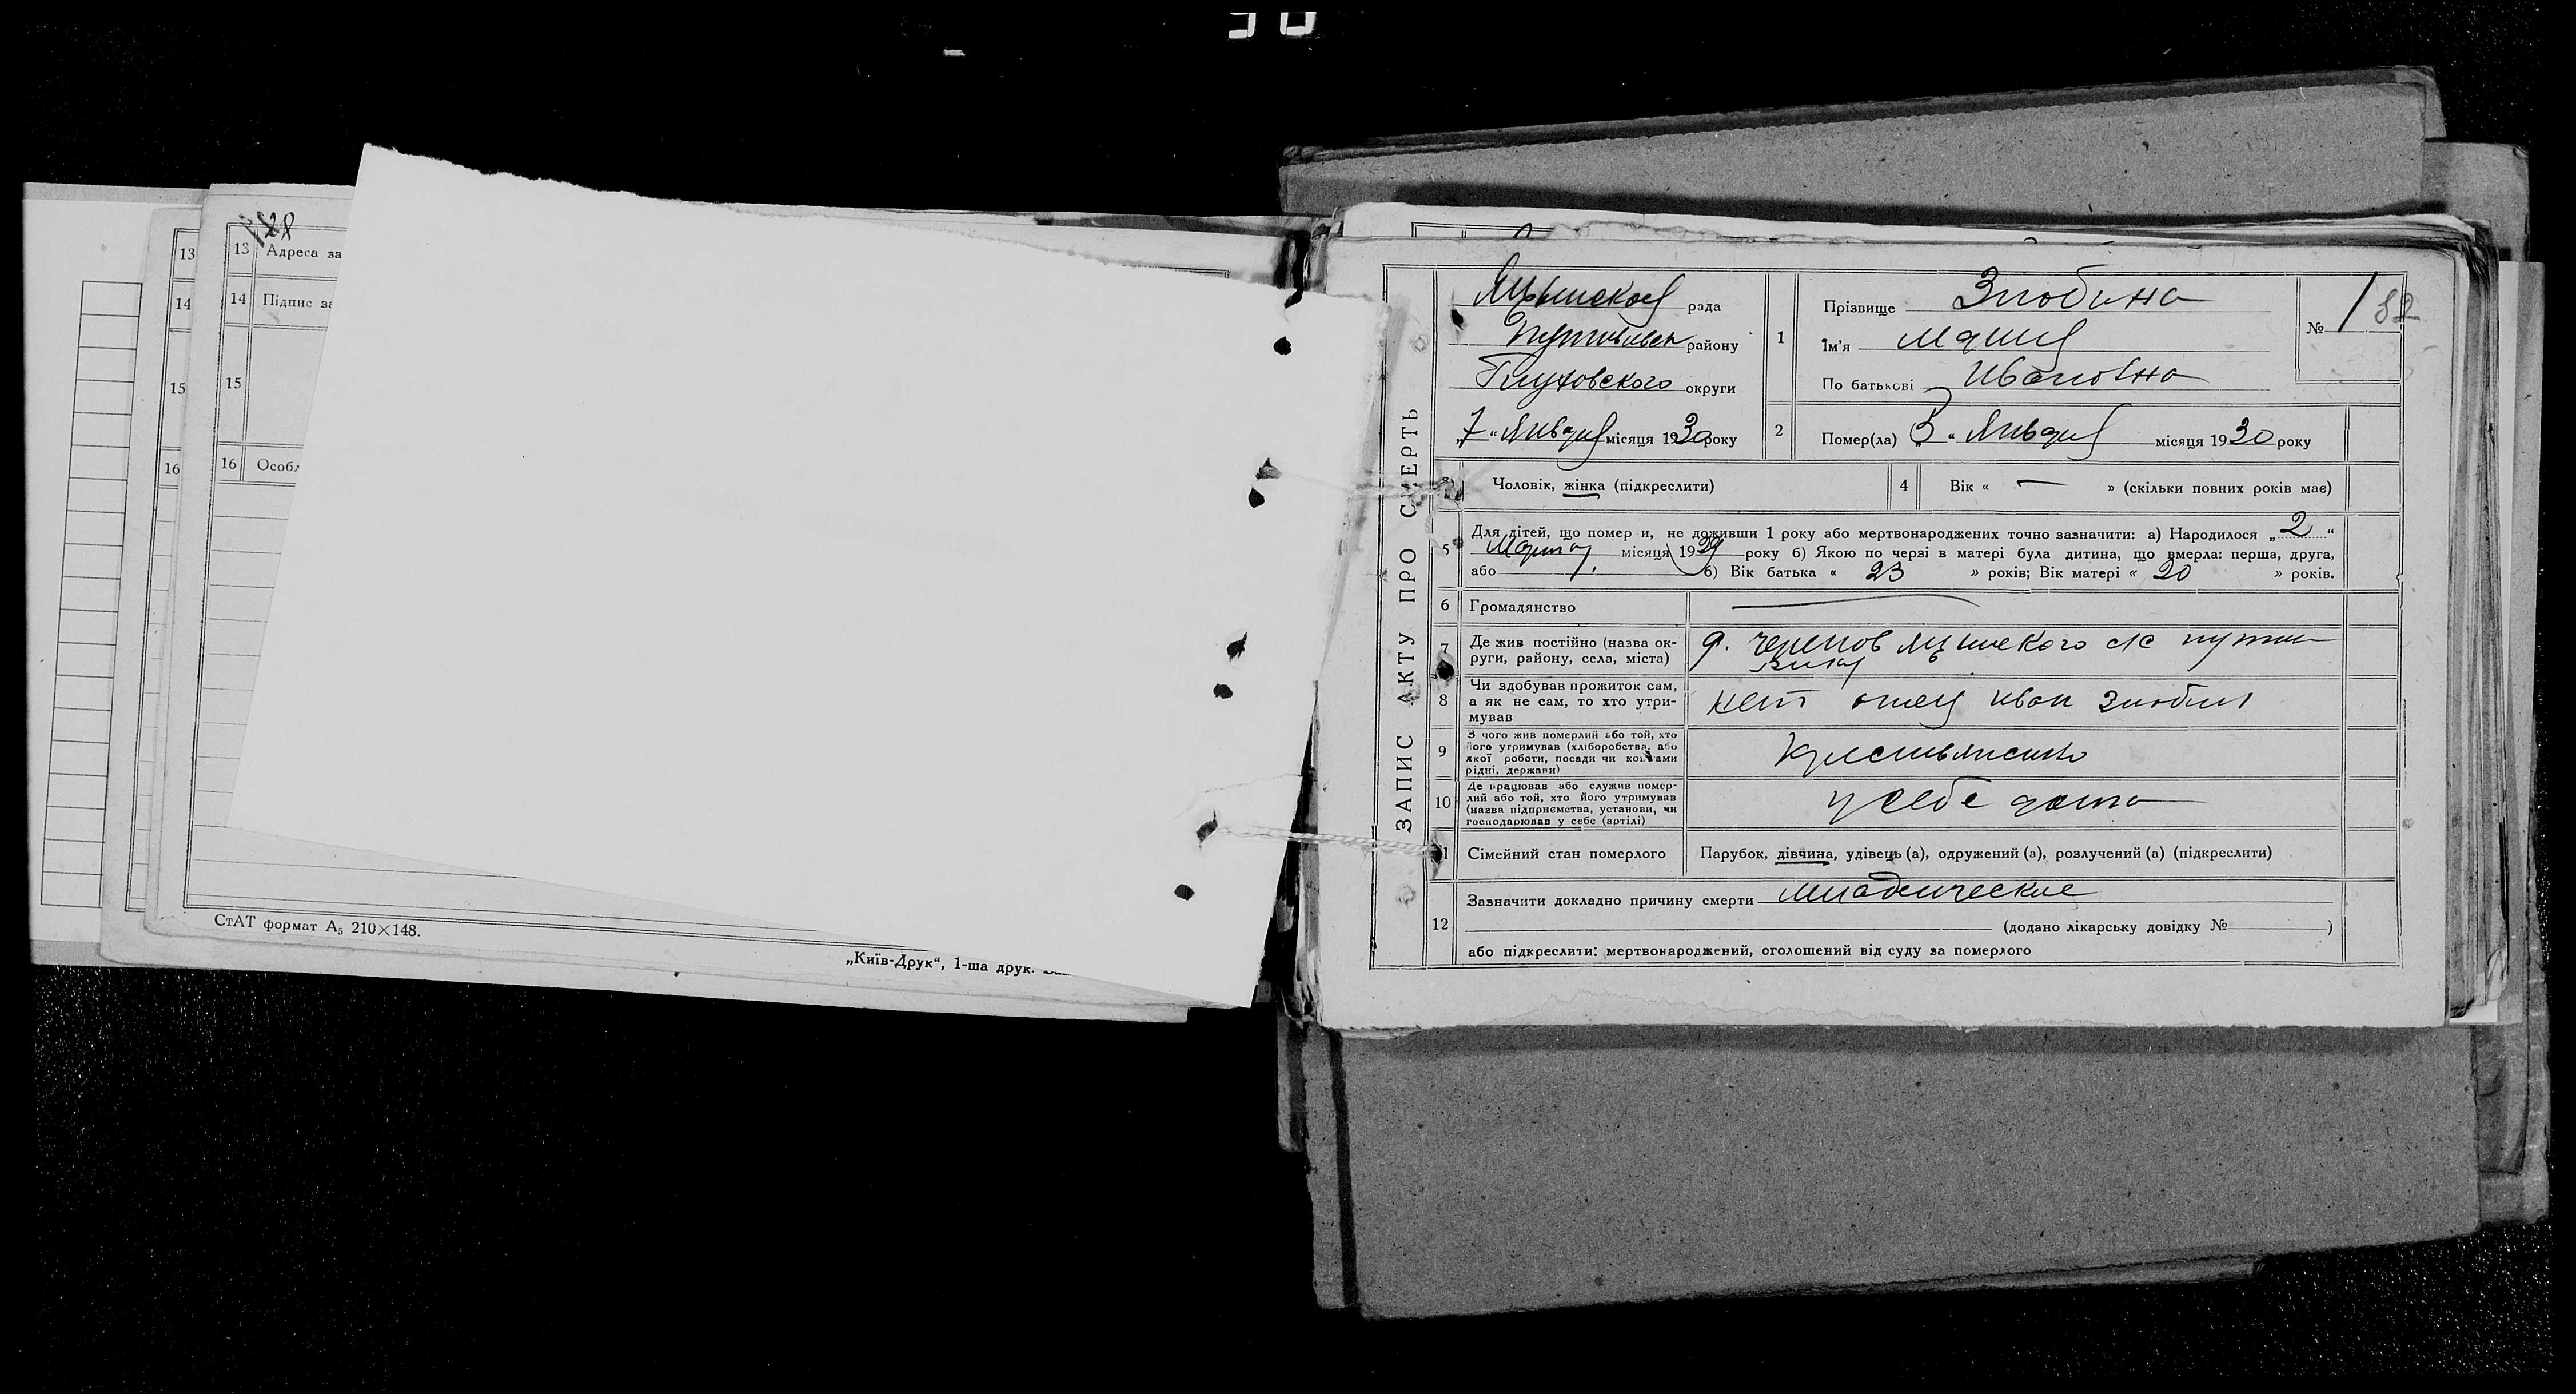 128
13
13 Адреса за
14
14 Підпис за
15
15
16
16 Особл
СтАТ формат А5 210×148.
„Київ-Друк“, 1-ша друк.
ЗАПИС АКТУ ПРО СМЕРТЬ
рада
району
Глуховского округи
„7“ Января місяця 1930 року
1
Прізвище Злобина
Ім'я Мария
По батькові Ивановна
№ 1
82
2
Помер(ла) „3“ Января місяця 1930 року
Чоловік, жінка (підкреслити)
4
Вік « — » (скільки повних років має)
5
Для дітей, що померли, не доживши 1 року або мертвонароджених точно зазначити: а) Народилося „2“
Марта місяця 1929 року б) Якою по черзі в матері була дитина, що вмерла: перша, друга,
або б) Вік батька « 23 » років; Вік матері « 20 » років.
6 Громадянство
7
Де жив постійно (назва ок-
руги, району, села, міста)
д.
8
Чи здобував прожиток сам,
а як не сам, то хто утри-
мував
нет отец Иван Злобин
9
З чого жив померлий або той, хто
його утримував (хліборобства, або
якої роботи, посади чи коштами
рідні, держави)
10
Де працював або служив помер-
лий або той, хто його утримував
(назва підприємства, установи, чи
господарював у себе (артілі)
у себе дома
11 Сімейний стан померлого
Парубок, дівчина, удівець (а), одружений (а), розлучений (а) (підкреслити)
12
Зазначити докладно причину смерти младенческие
(додано лікарську довідку № )
або підкреслити: мертвонароджений, оголошений від суду за померлого